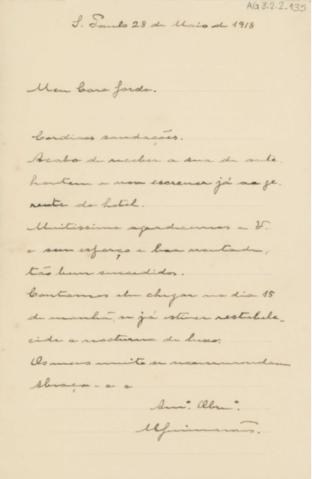 AG3.2.2.135
S. Paulo 28 de Maio de 1918
Meu Caro Jordo.
Cordiaes saudações.
Acabo de receber a sua de ante
hontem e vou escrever já ao ge-
rente do hotel.
Muitissimo agradecemos a V.
o seu esforço e boa vontade,
tão bem succedidos.
Contamos ahi chegar no dia 15
de manhã, se já estiver restabele-
cido o nocturno de luxo.
Os meus muito se recommendam
Abraça-o o
Amº. Obrº.
Guimarães.